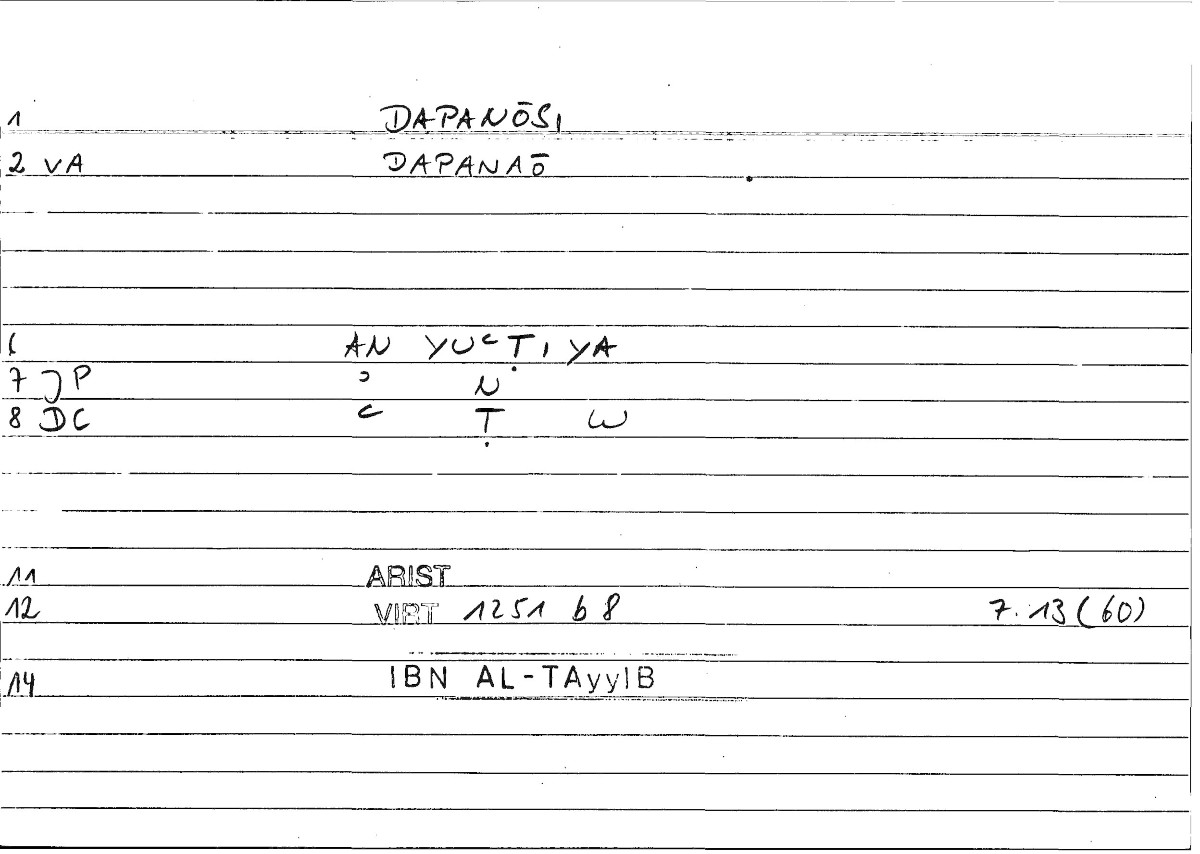 1 DAPANŌSI
2 VA DAPANAŌ
6 AN YUʿṬIYA
7 JP ʾ N
8 DC ʿ Ṭ W
11 ARIST
12 VIRT 1251 b 8 7.13(60)
14 IBN AL-TAyyIB